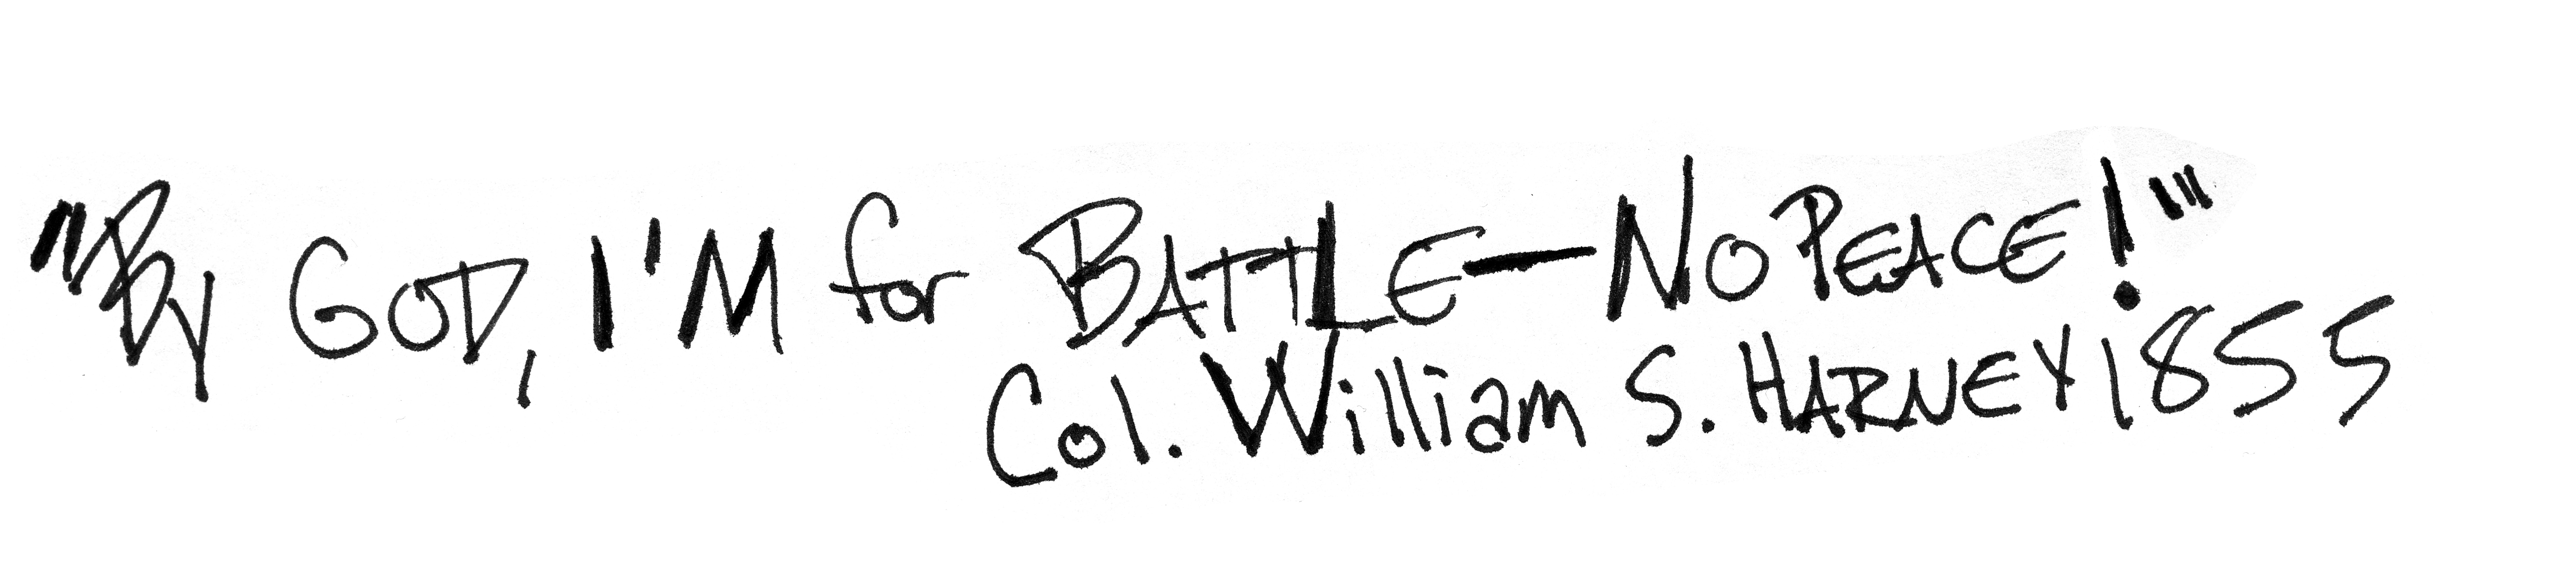 "By GOD, I'M for BATTLE—NO PEACE!"'
Col. William S. HARNEY 1855